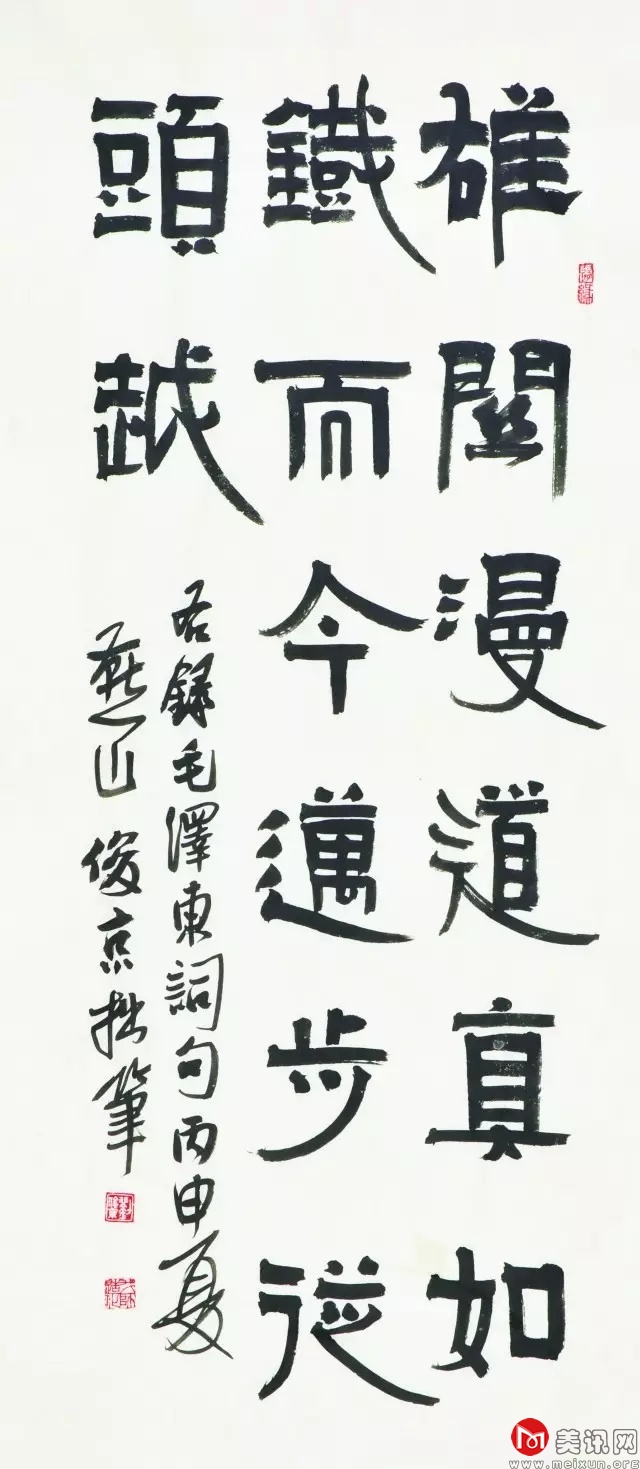 雄關漫道真如
鐵而今邁步從
頭越
右錄毛澤東詞句丙申夏
燕山俊京拙筆
美讯网
www.meixun.org